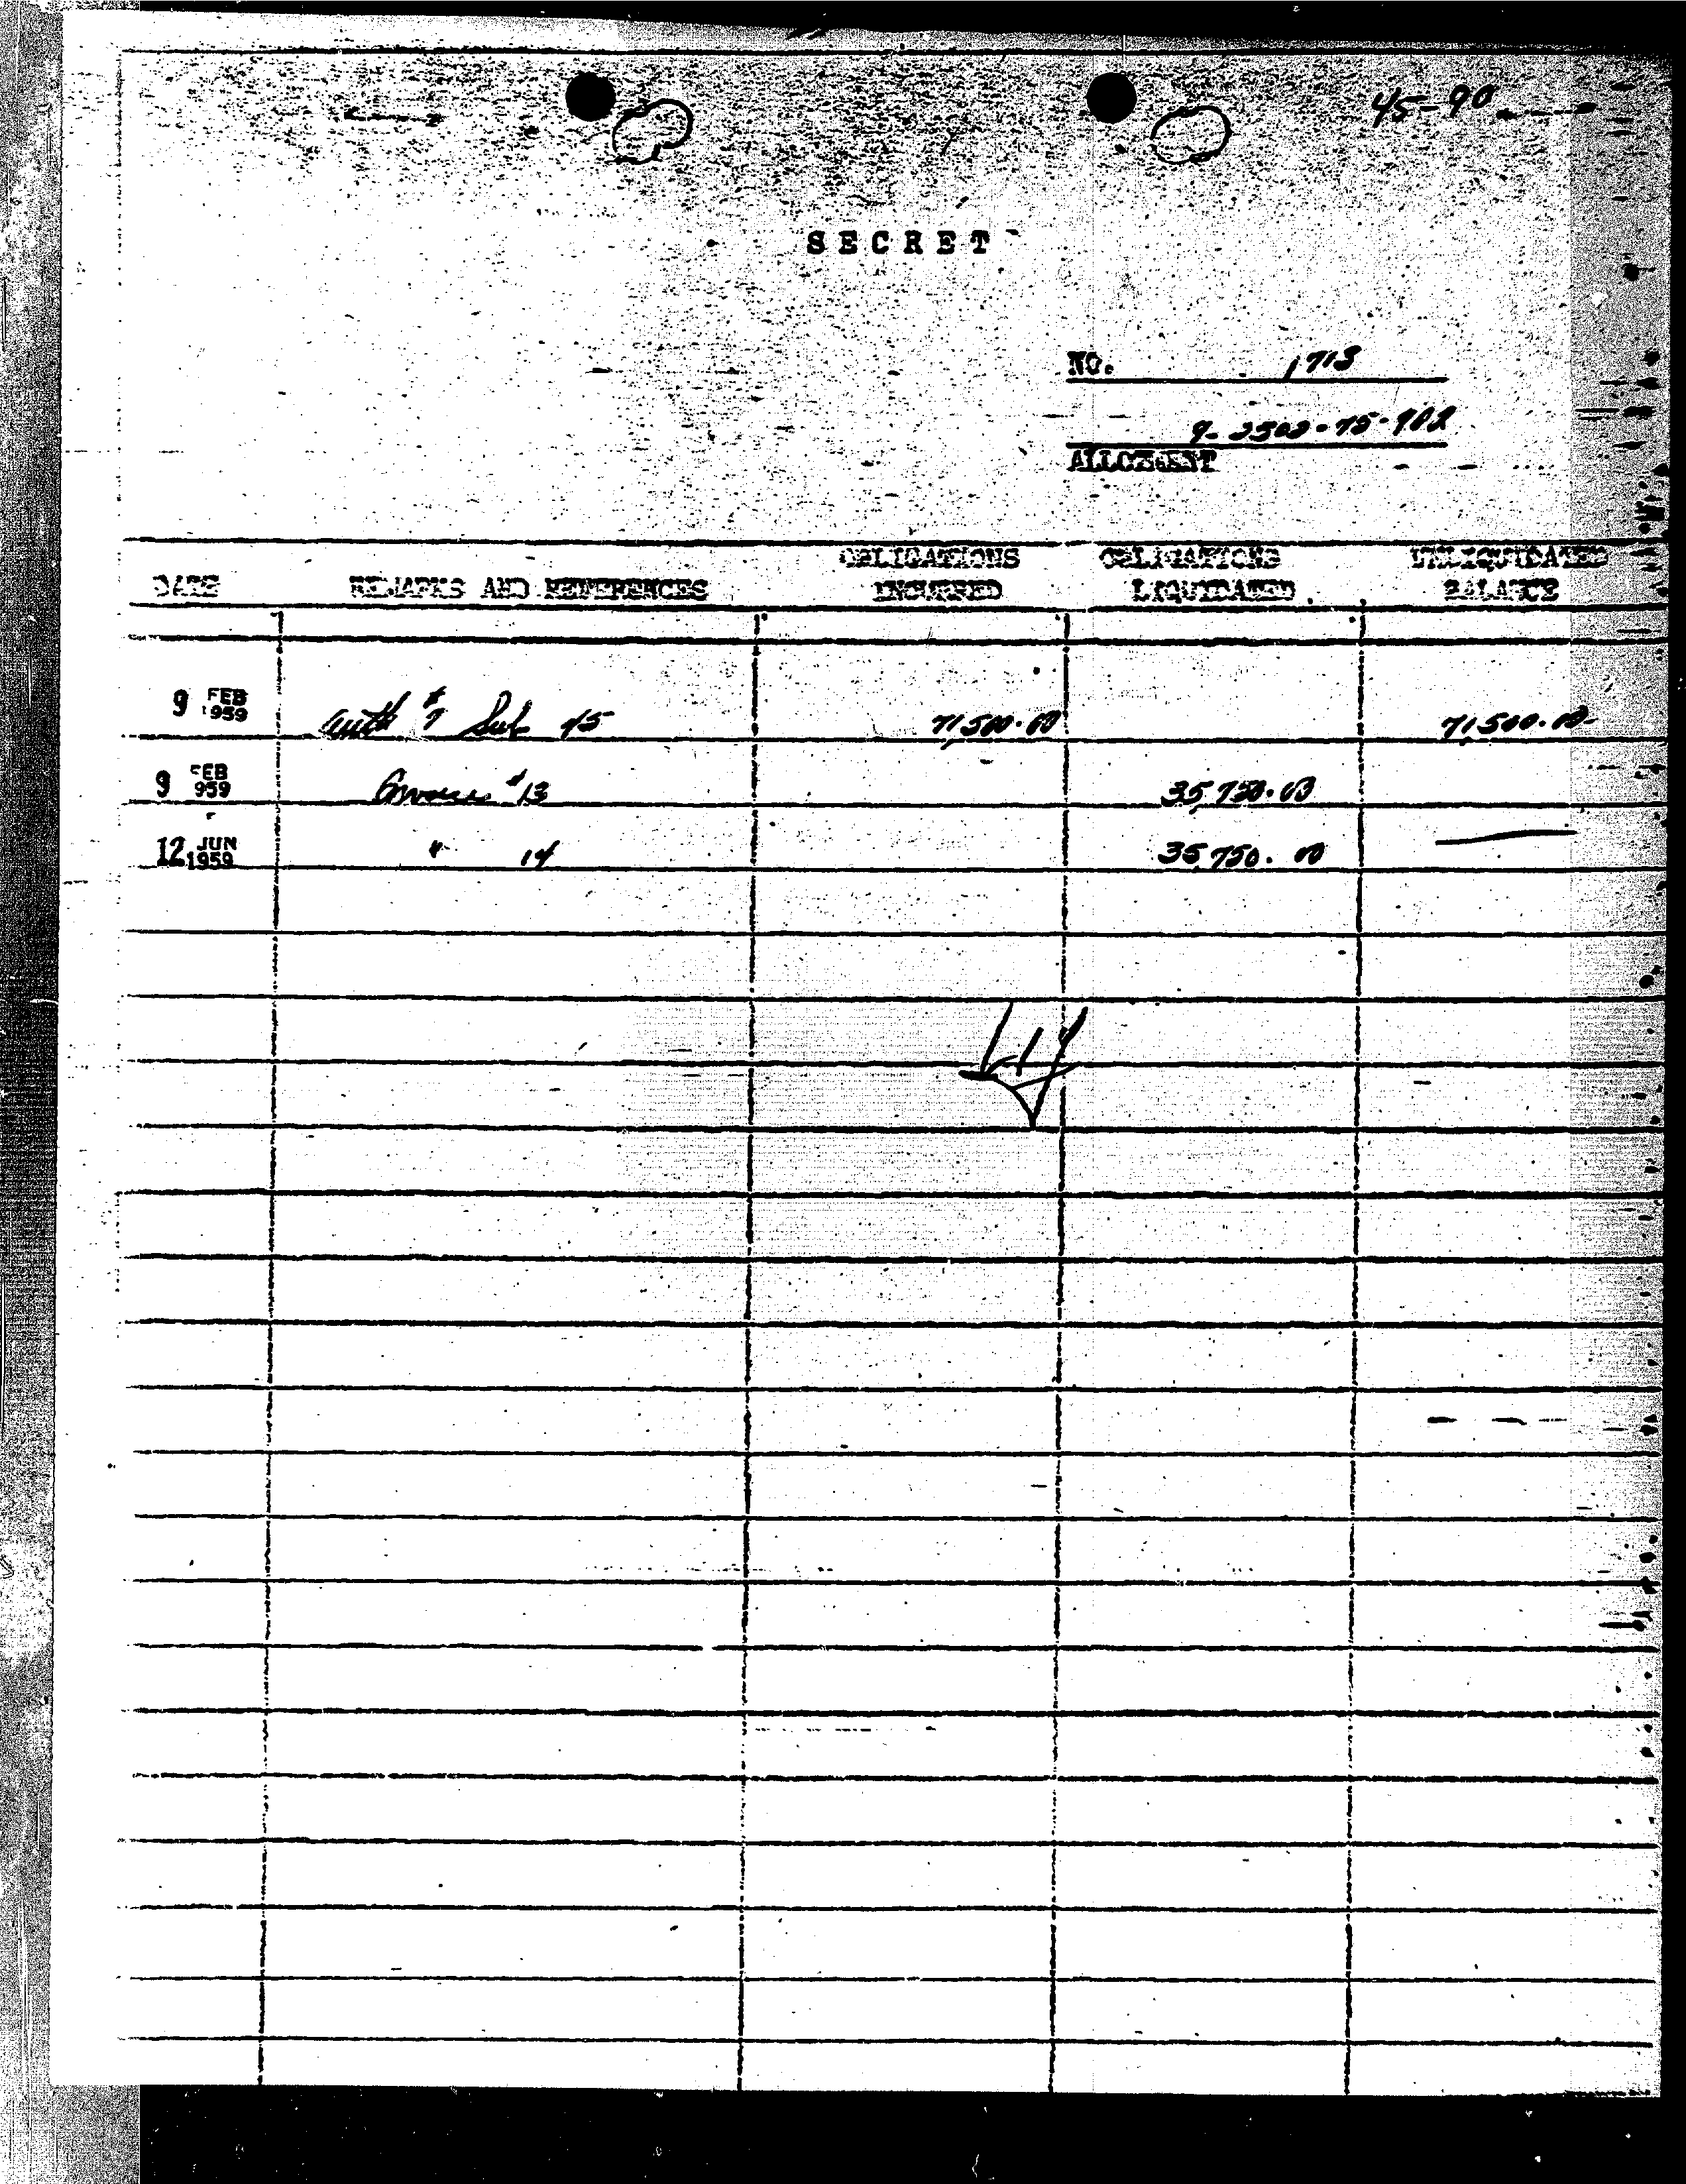 45-90
SECRET
NO. 1713
9-2502-75-902
ALLOTMENT
DATE REMARKS AND REFERENCES OBLIGATIONS INCURRED OBLIGATIONS LIQUIDATED UNLIQUIDATED BALANCE
9 FEB 1959 Auth # 7 Sub 45 71,500.00 71,500.00
9 FEB 959 Invoice #13 35,750.00
12 JUN 1959 " 14 35,750.00 —